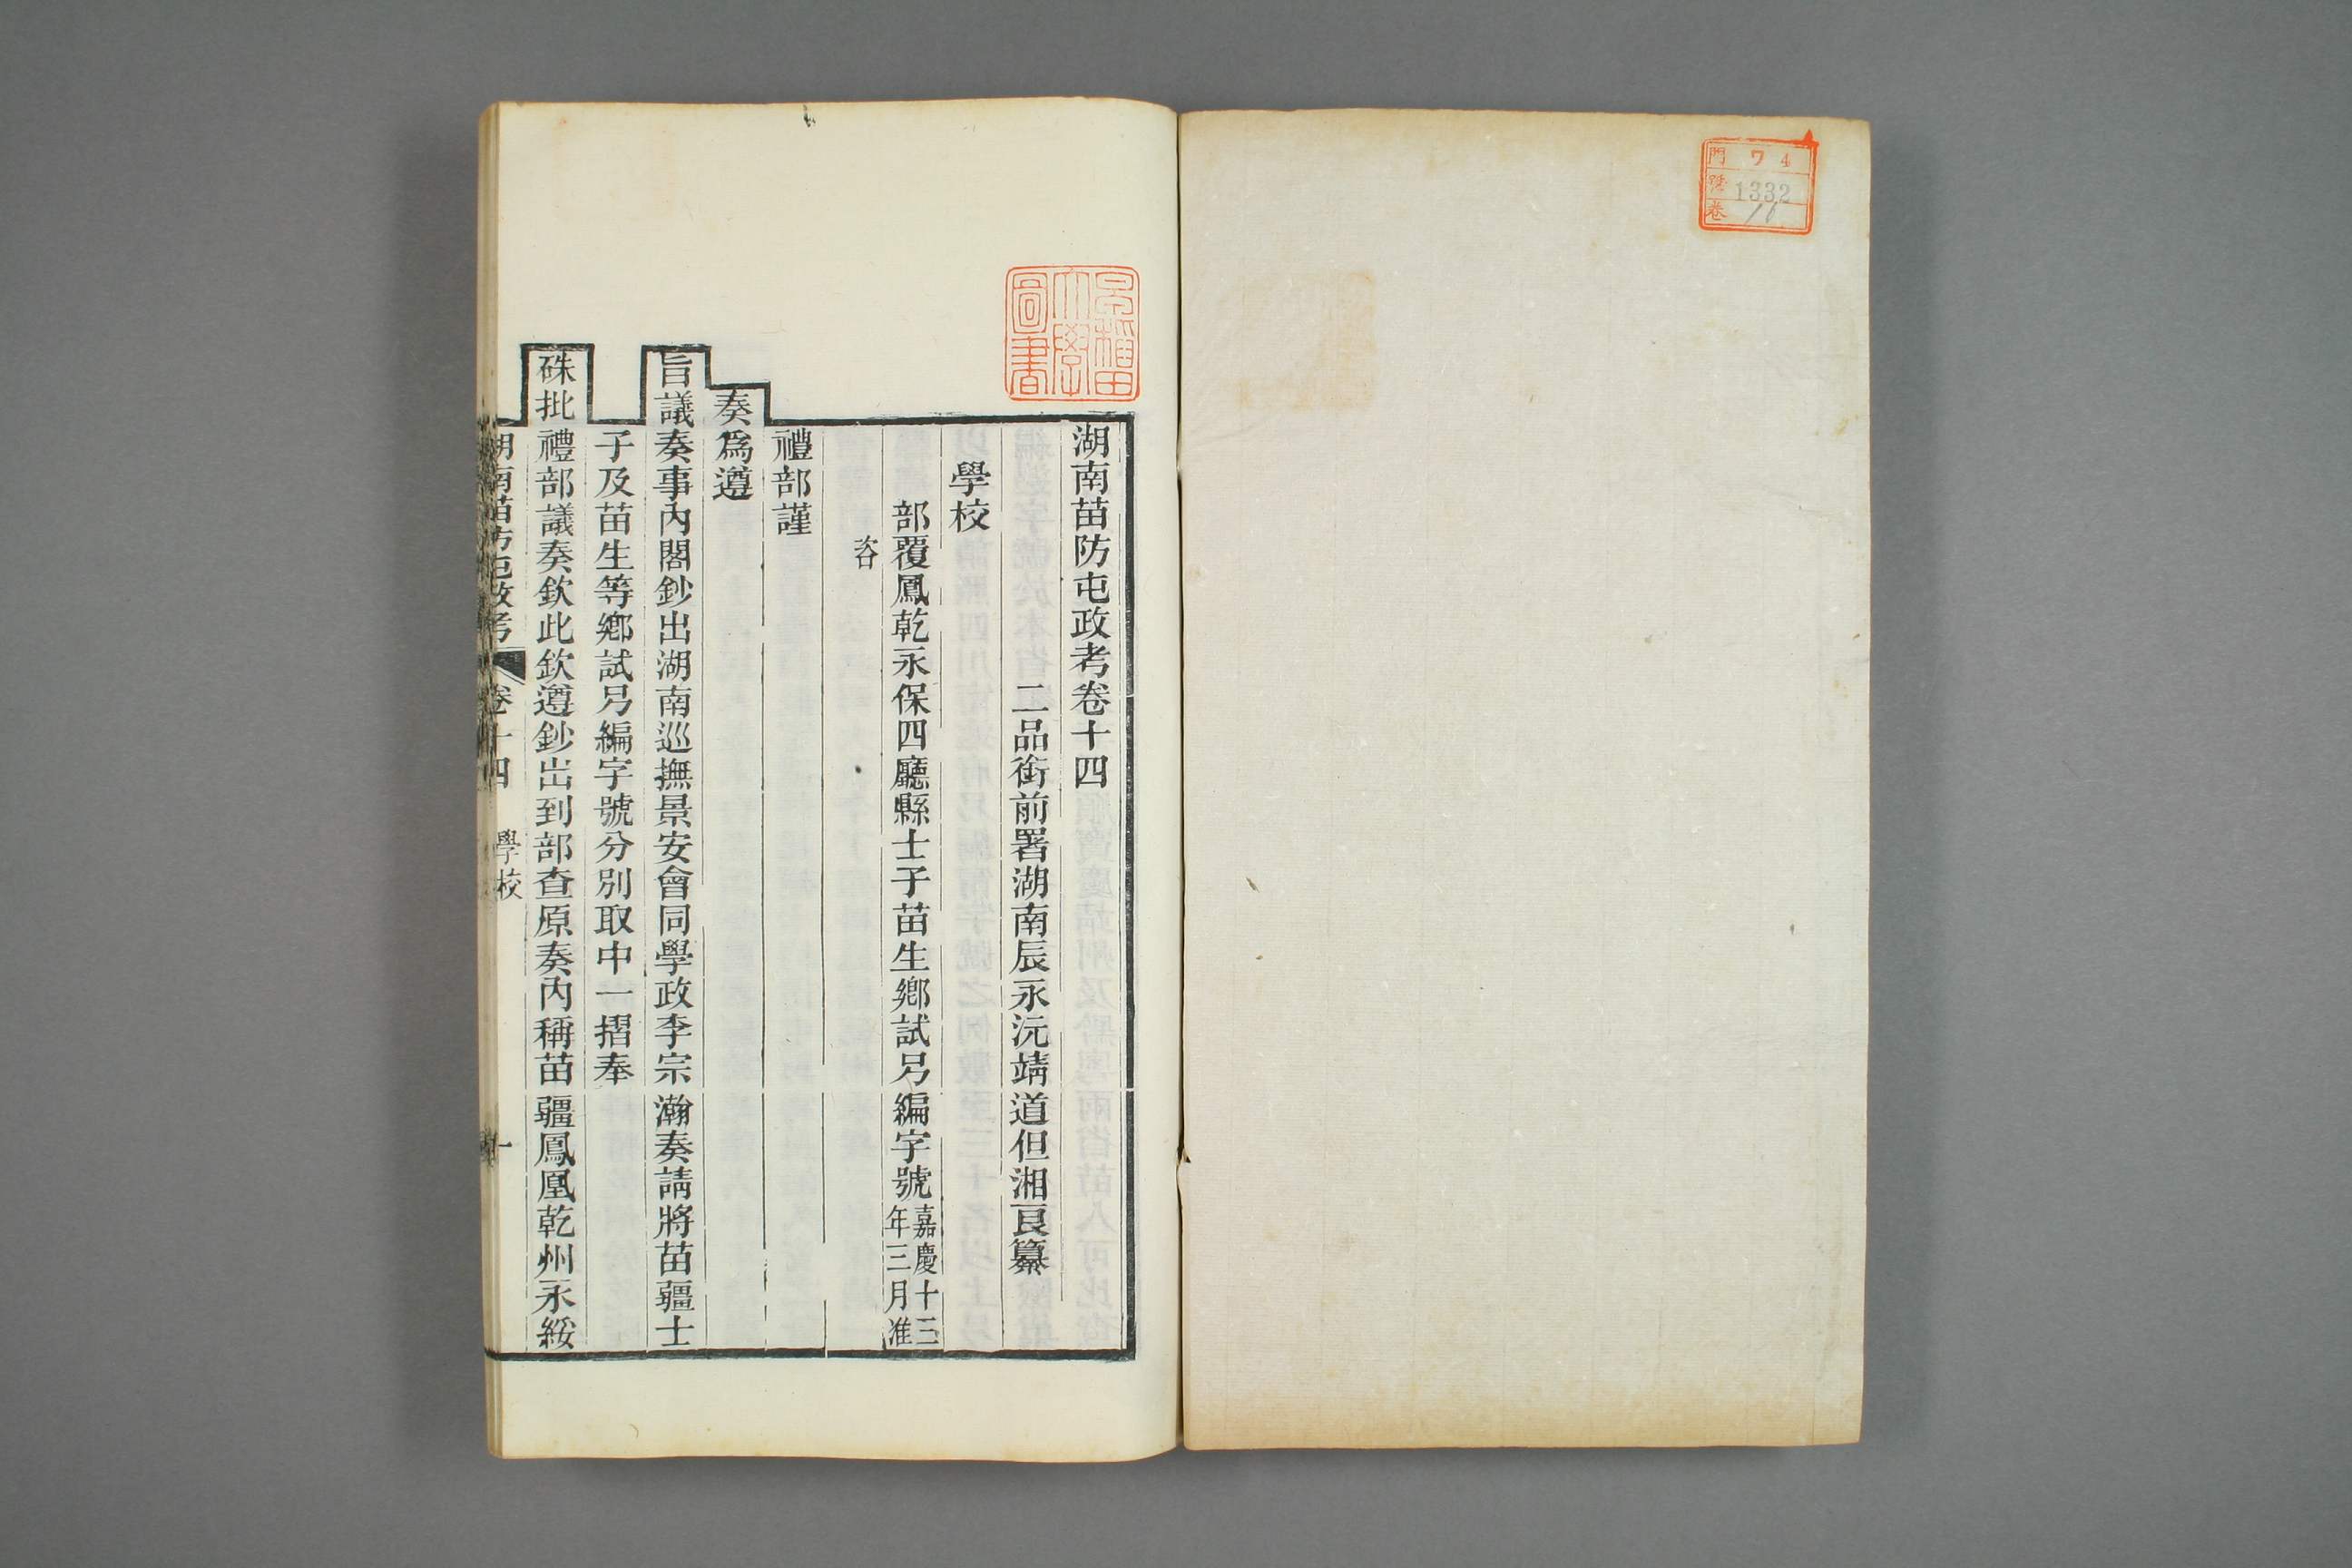 門 ワ 4
號 1332
卷 16
早稲田大學圖書
湖南苗防屯政考卷十四
二品銜前署湖南辰永沅靖道但湘良纂
學校
部覆鳳乾永保四廳縣士子苗生鄉試另編字號嘉慶十三年三月准
咨
禮部謹
奏為遵
旨議奏事內閣鈔出湖南巡撫景安會同學政李宗瀚奏請將苗疆士
子及苗生等鄉試另編字號分別取中一摺奉
硃批禮部議奏欽此欽遵鈔出到部查原奏內稱苗疆鳳凰乾州永綏
湖南苗防屯政考 卷十四 學校 一